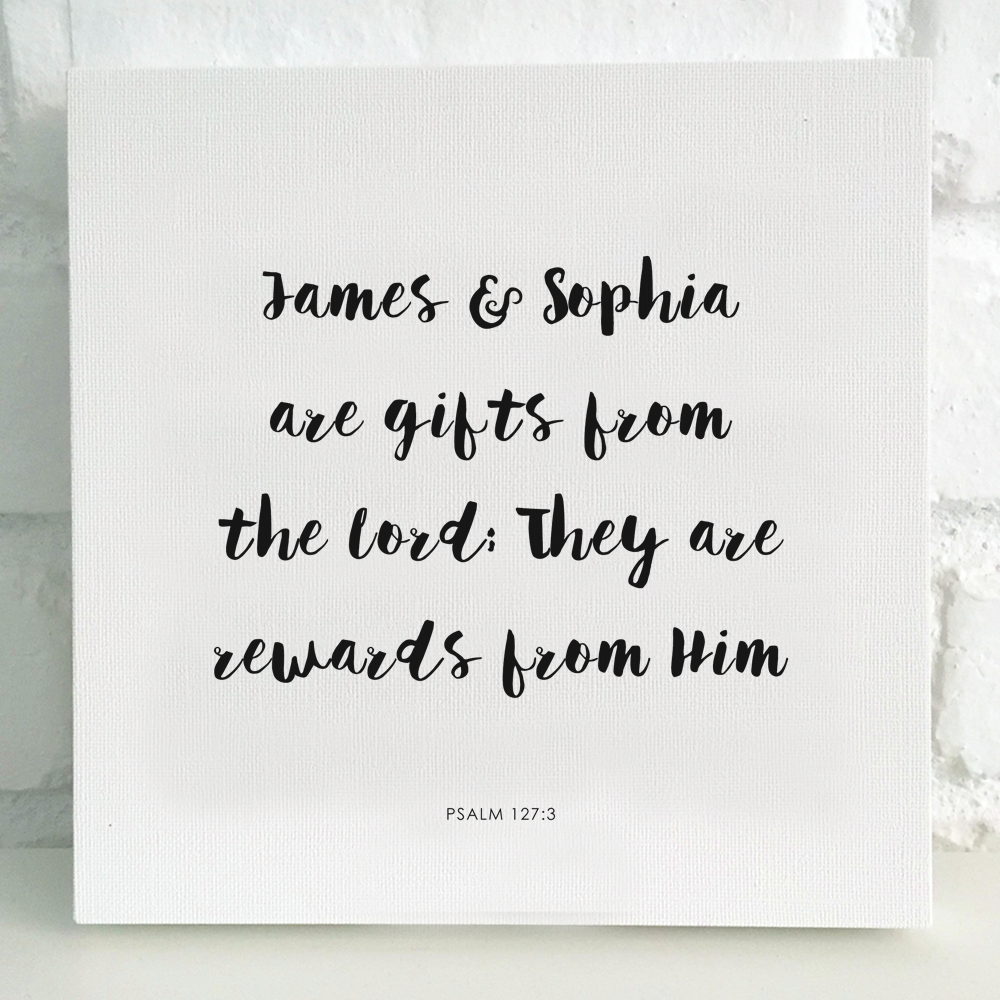 James & Sophia
are gifts from
the lord; They are
rewards from Him
PSALM 127:3